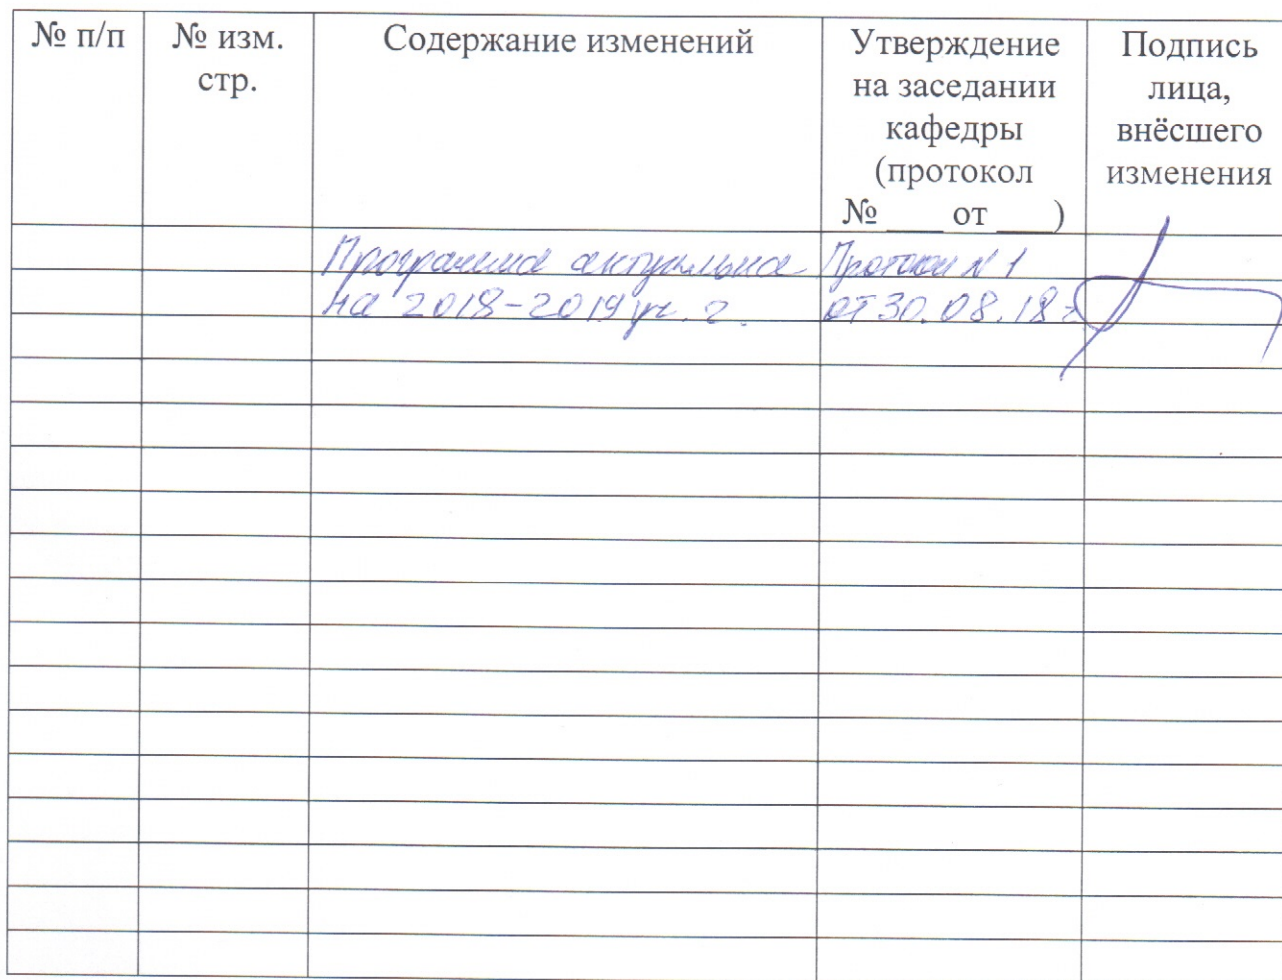 № п/п
№ изм.
стр.
Содержание изменений
Утверждение
на заседании
кафедры
(протокол
№ ____ от ____)
Подпись
лица,
внёсшего
изменения
Программа актуальна
на 2018-2019 уч. г.
Протокол N 1
от 30.08.18 г